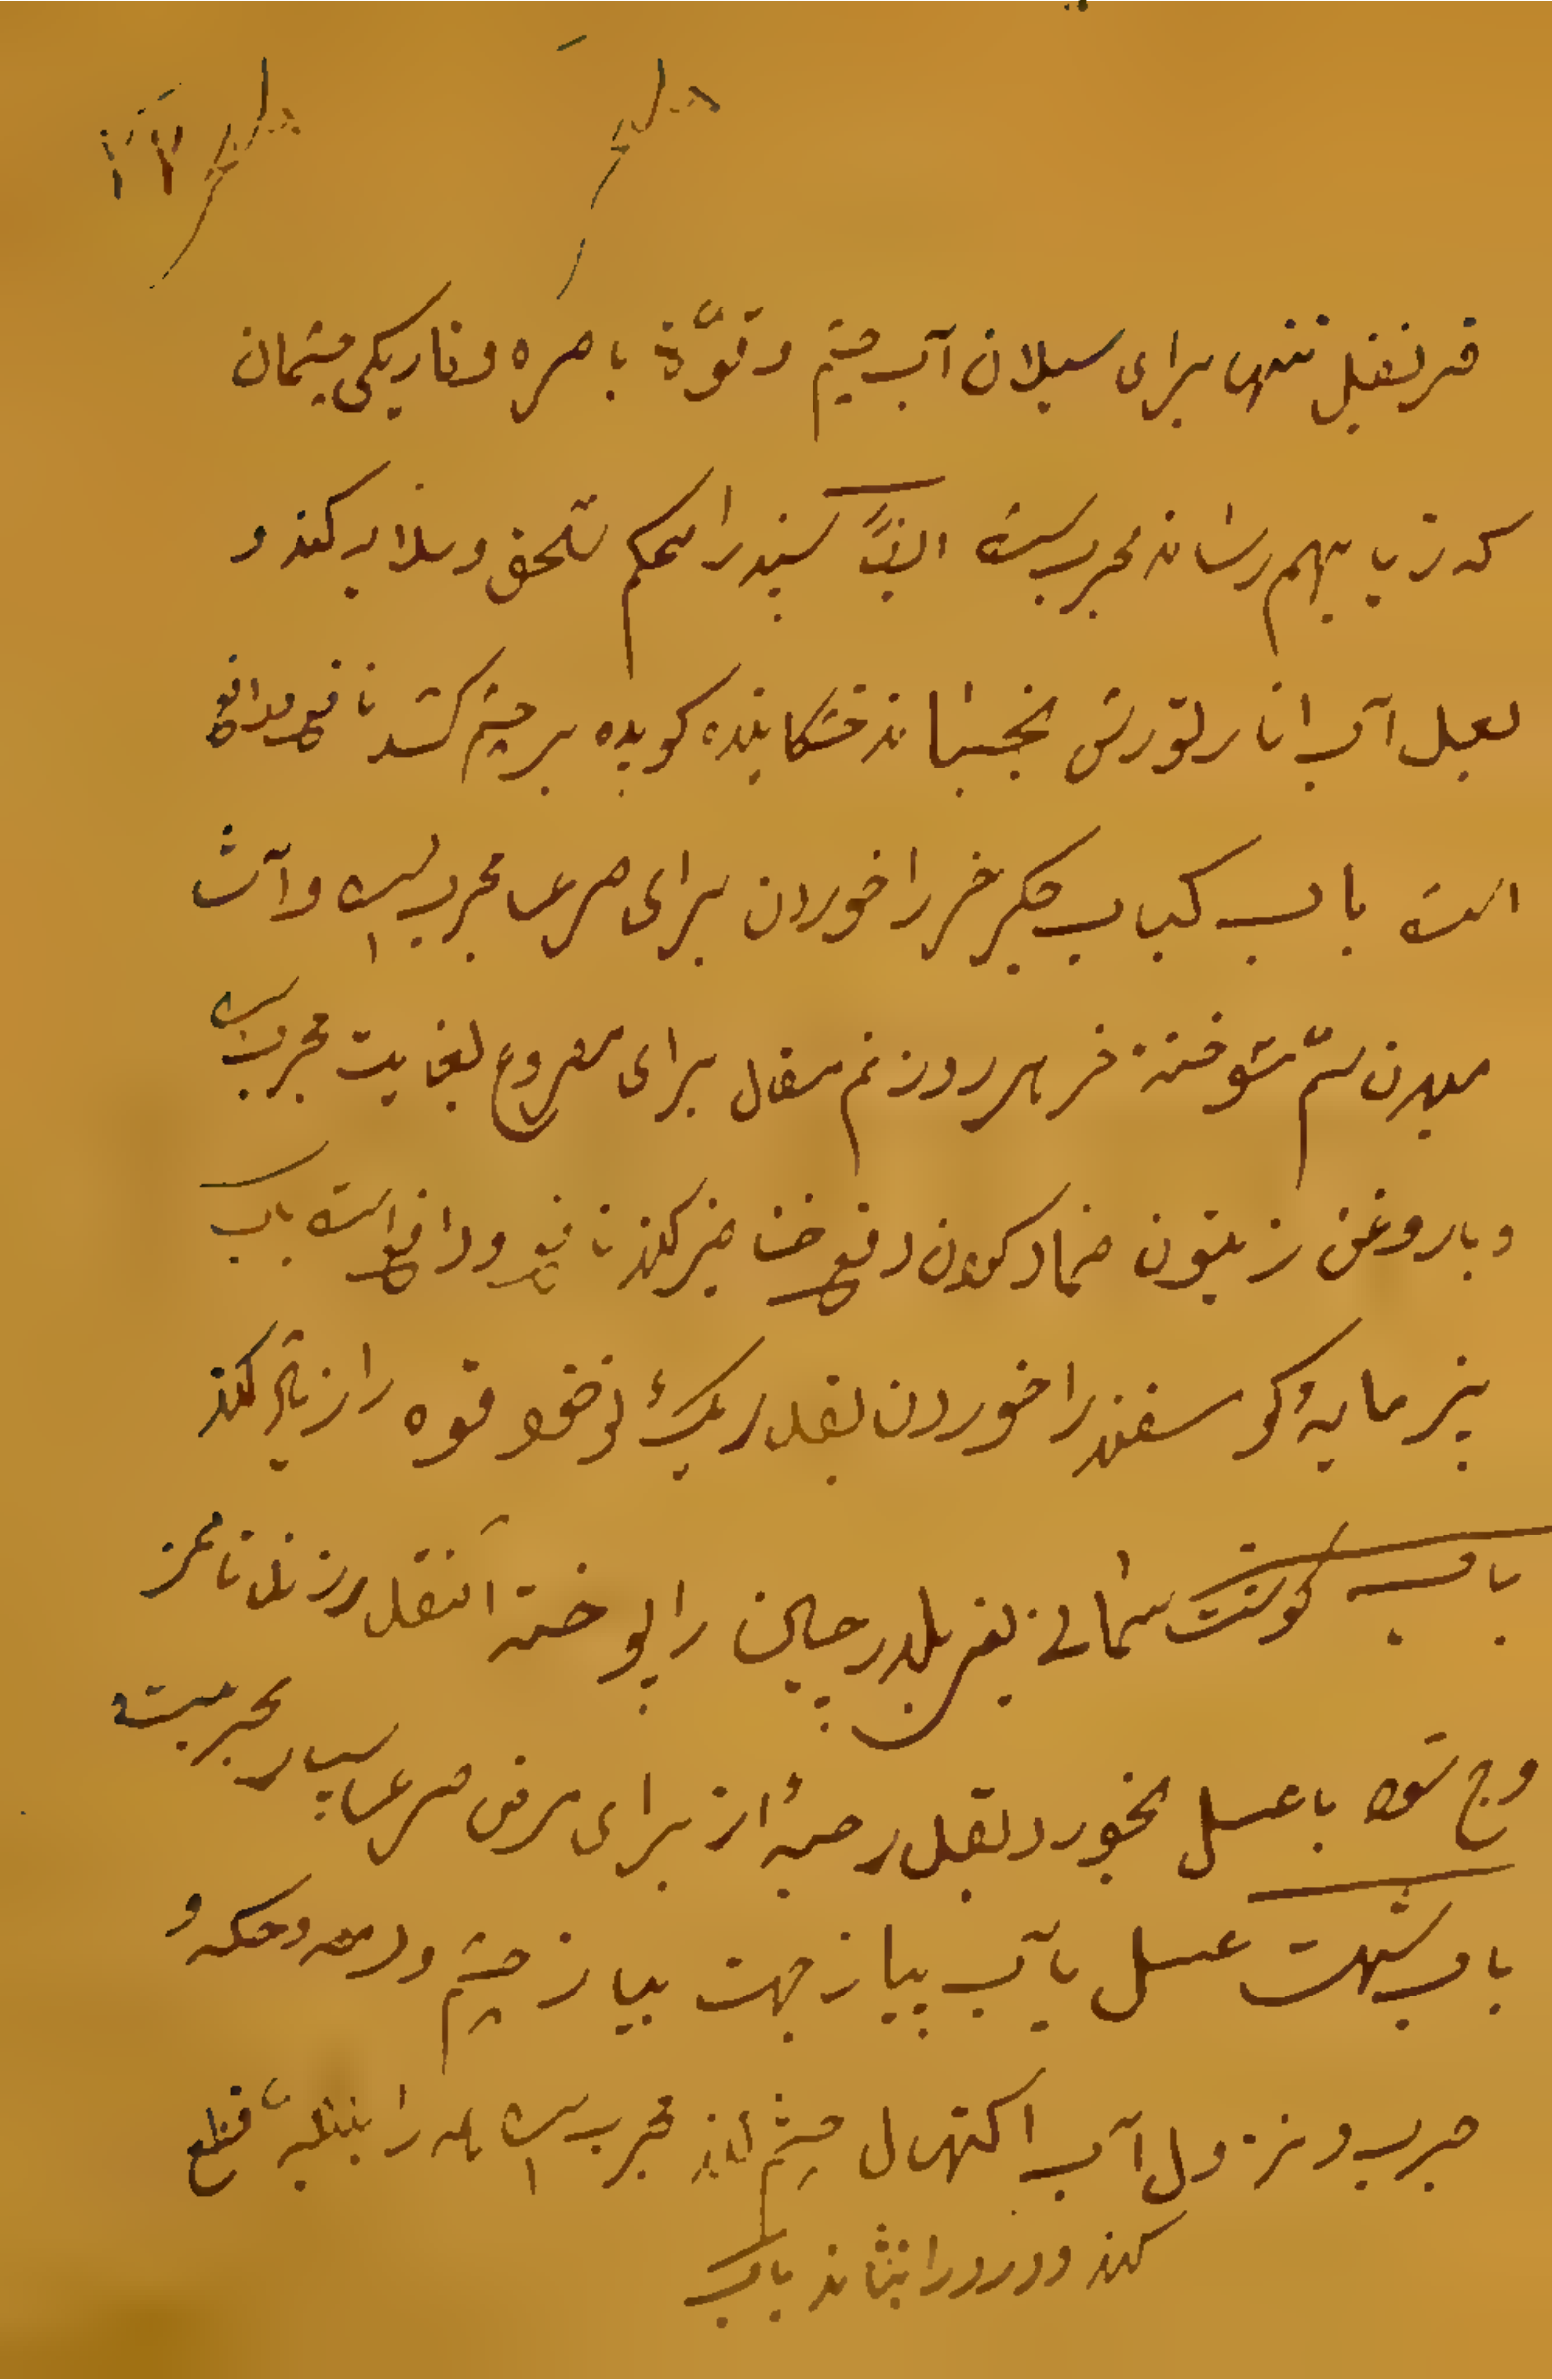 قرنفل تنها برای سیلان آب چشم و قوّة باصره و تاریکی چشمان
که زیا بهم رساند مجربست ایضاً سپند را محکم سحق و صلایه کند و
بعبل آب انار تورش بخیساند خشکانیده کوبیده بر چشم کشد نافع و دافع
است باب کباب جگر خر را خوردن برای صرع مجربست و آش
میدن سمّ سوخته خر هر روز نیم مثقال برای مصروع بغایت مجربست
و با روغن زیتون ضماد کردن دفع خنازیر کند نافع و دافع است باب
پنیر مایهٔ کوسفند را خوردن بقدر یک نخود قوه را زیاد کند
باب کوشت سمانی یعنی بلدرچین را پوخته آنقدر بزند تا مغز
وج شود با عسل بخورد بقدر حبهٔ از برای مرض صرع بسیار مجربست
باب شهت عسل با آب پیاز جهت بیاز چشم و دمعه و حکه و
جرب و نزول آب اکتهال چشم کند مجربست نامه را بنظیه قطع
کند و درد را بنشاند باب